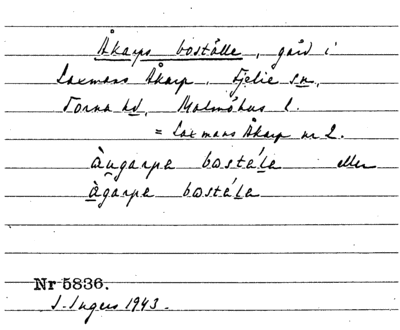 Åkarps boställe, gård i
Laxmans Åkarp. Fjelie sn,
Torna hd, Malmöhus l.
= Laxmans Åkarp nr 2.
àugarpa bostála eller
àgarpa bostála
Nr 5836.
I. Ingers 1943.